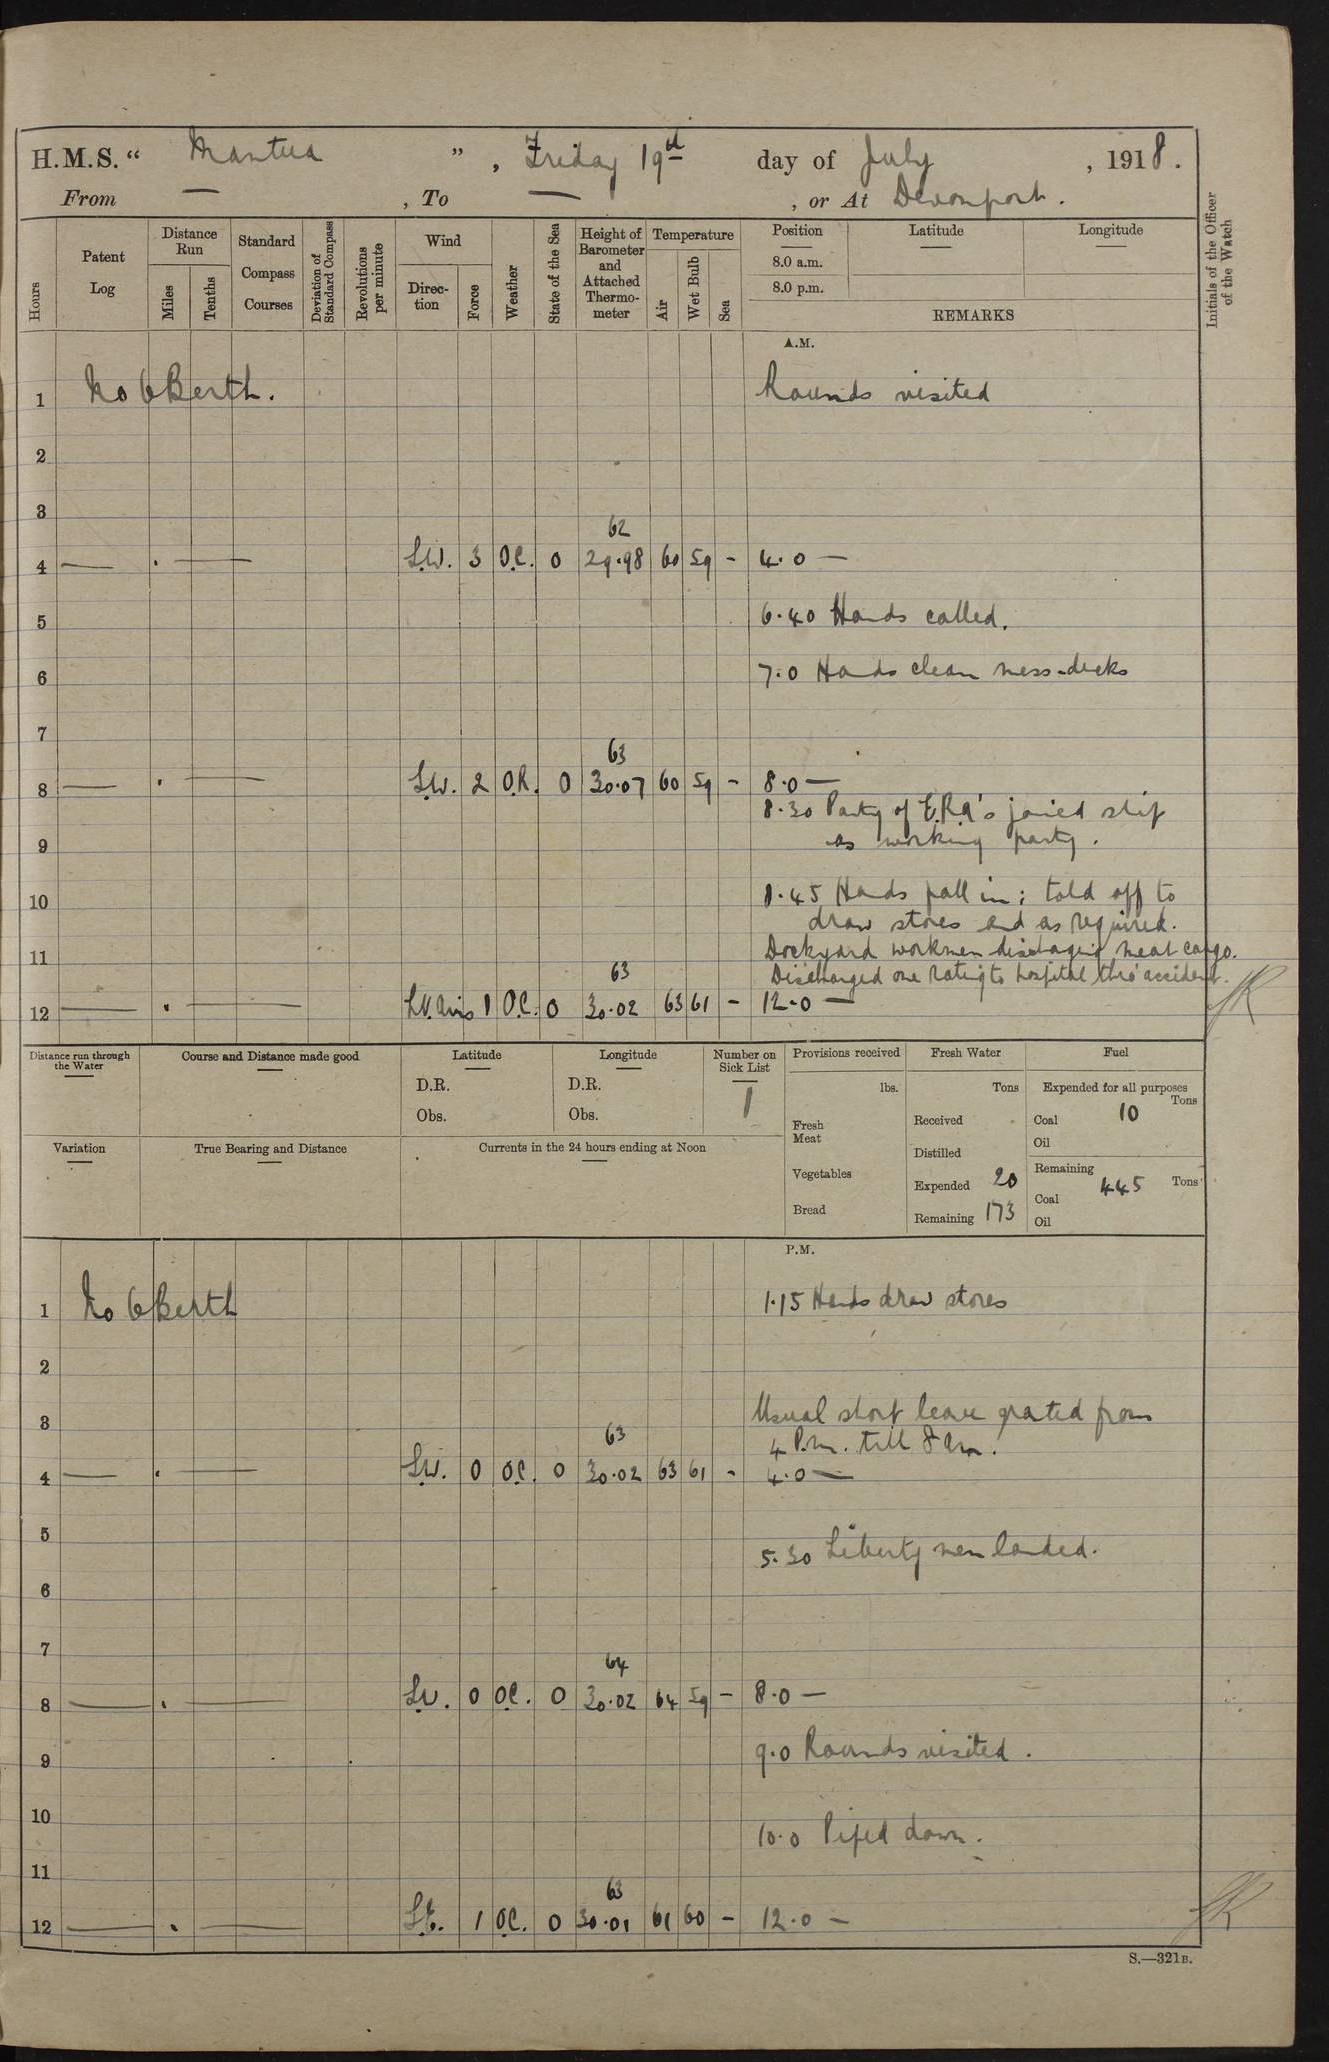 H.M.S. “ Mantua ” , Friday 19th day of July , 1918.
From — , To — , or At Devonport.
Hours
Patent Log
Distance Run
Miles
Tenths
Standard Compass Courses
Deviation of Standard Compass
Revolutions per minute
Wind
Direction
Force
Weather
State of the Sea
Height of Barometer and Attached Thermometer
Temperature
Air
Wet Bulb
Sea
Position
8.0 a.m.
8.0 p.m.
Latitude
Longitude
REMARKS
Initials of the Officer of the Watch
A.M.
1 No 6 Berth. Rounds visited
2
3
62
4 — . — S.W. 3 O.C. 0 29.98 60 59 - 4.0 —
5 6.40 Hands called.
6 7.0 Hands clean mess-decks
7
63
8 — . — S.W. 2 O.R. 0 30.07 60 59 - 8.0 —
8.30 Party of E.R.A's joined ship
9 as working party.
10 8.45 Hands fall in; told off to
draw stores and as required.
11 Dockyard workmen discharging meat cargo.
63 Discharged one rating to hospital thro' accident.
12 — . — 1 O.C. 0 30.02 63 61 - 12.0 —
Distance run through the Water
Course and Distance made good
Latitude
D.R.
Obs.
Longitude
D.R.
Obs.
Number on Sick List
1
Provisions received
lbs.
Fresh Meat
Vegetables
Bread
Fresh Water
Tons
Received
Distilled
Expended 20
Remaining 173
Fuel
Expended for all purposes
Tons
Coal 10
Oil
Remaining
Coal 445 Tons
Oil
Variation
True Bearing and Distance
Currents in the 24 hours ending at Noon
P.M.
1 No 6 Berth 1.15 Hands draw stores
2
3 Usual short leave granted from
63 4 P.m. till 8 am.
4 — . — S.W. 0 O.C. 0 30.02 63 61 - 4.0 —
5 5.30 Liberty men landed.
6
7
64
8 — . — S.W. 0 O.C. 0 30.02 64 59 - 8.0 —
9 9.0 Rounds visited.
10 10.0 Piped down.
11
63
12 — . — S.E. 1 O.C. 0 30.01 61 60 - 12.0 —
S.—321B.